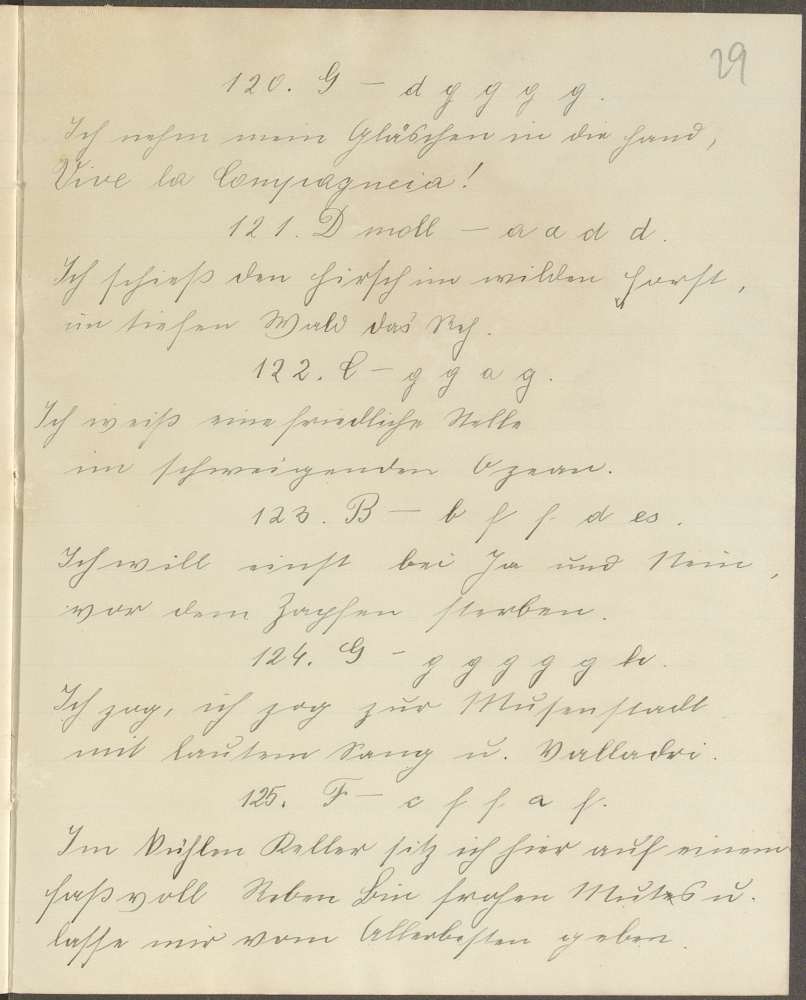 29
120. G – d g g g g.
Ich nehm mein Gläschen in die Hand,
Vive la Compagneia!
121. D moll – a a d d.
Ich schieß den Hirsch im wilden Forst,
im tiefen Wald das Reh.
122. C – g g a g.
Ich weiß eine friedliche Stelle
im schweigenden Ozean.
123. B – b f f d es.
Ich will einst bei Ja und Nein,
vor dem Zapfen sterben.
124. G – g g g g g h.
Ich zog, ich zog zur Musenstadt
mit lautem Sang u. Valladri.
125. F – c f f a f.
Im kühlen Keller sitz ich hier auf einem
Faß voll Reben bin frohen Mutes u.
lasse mir vom Allerbesten geben.